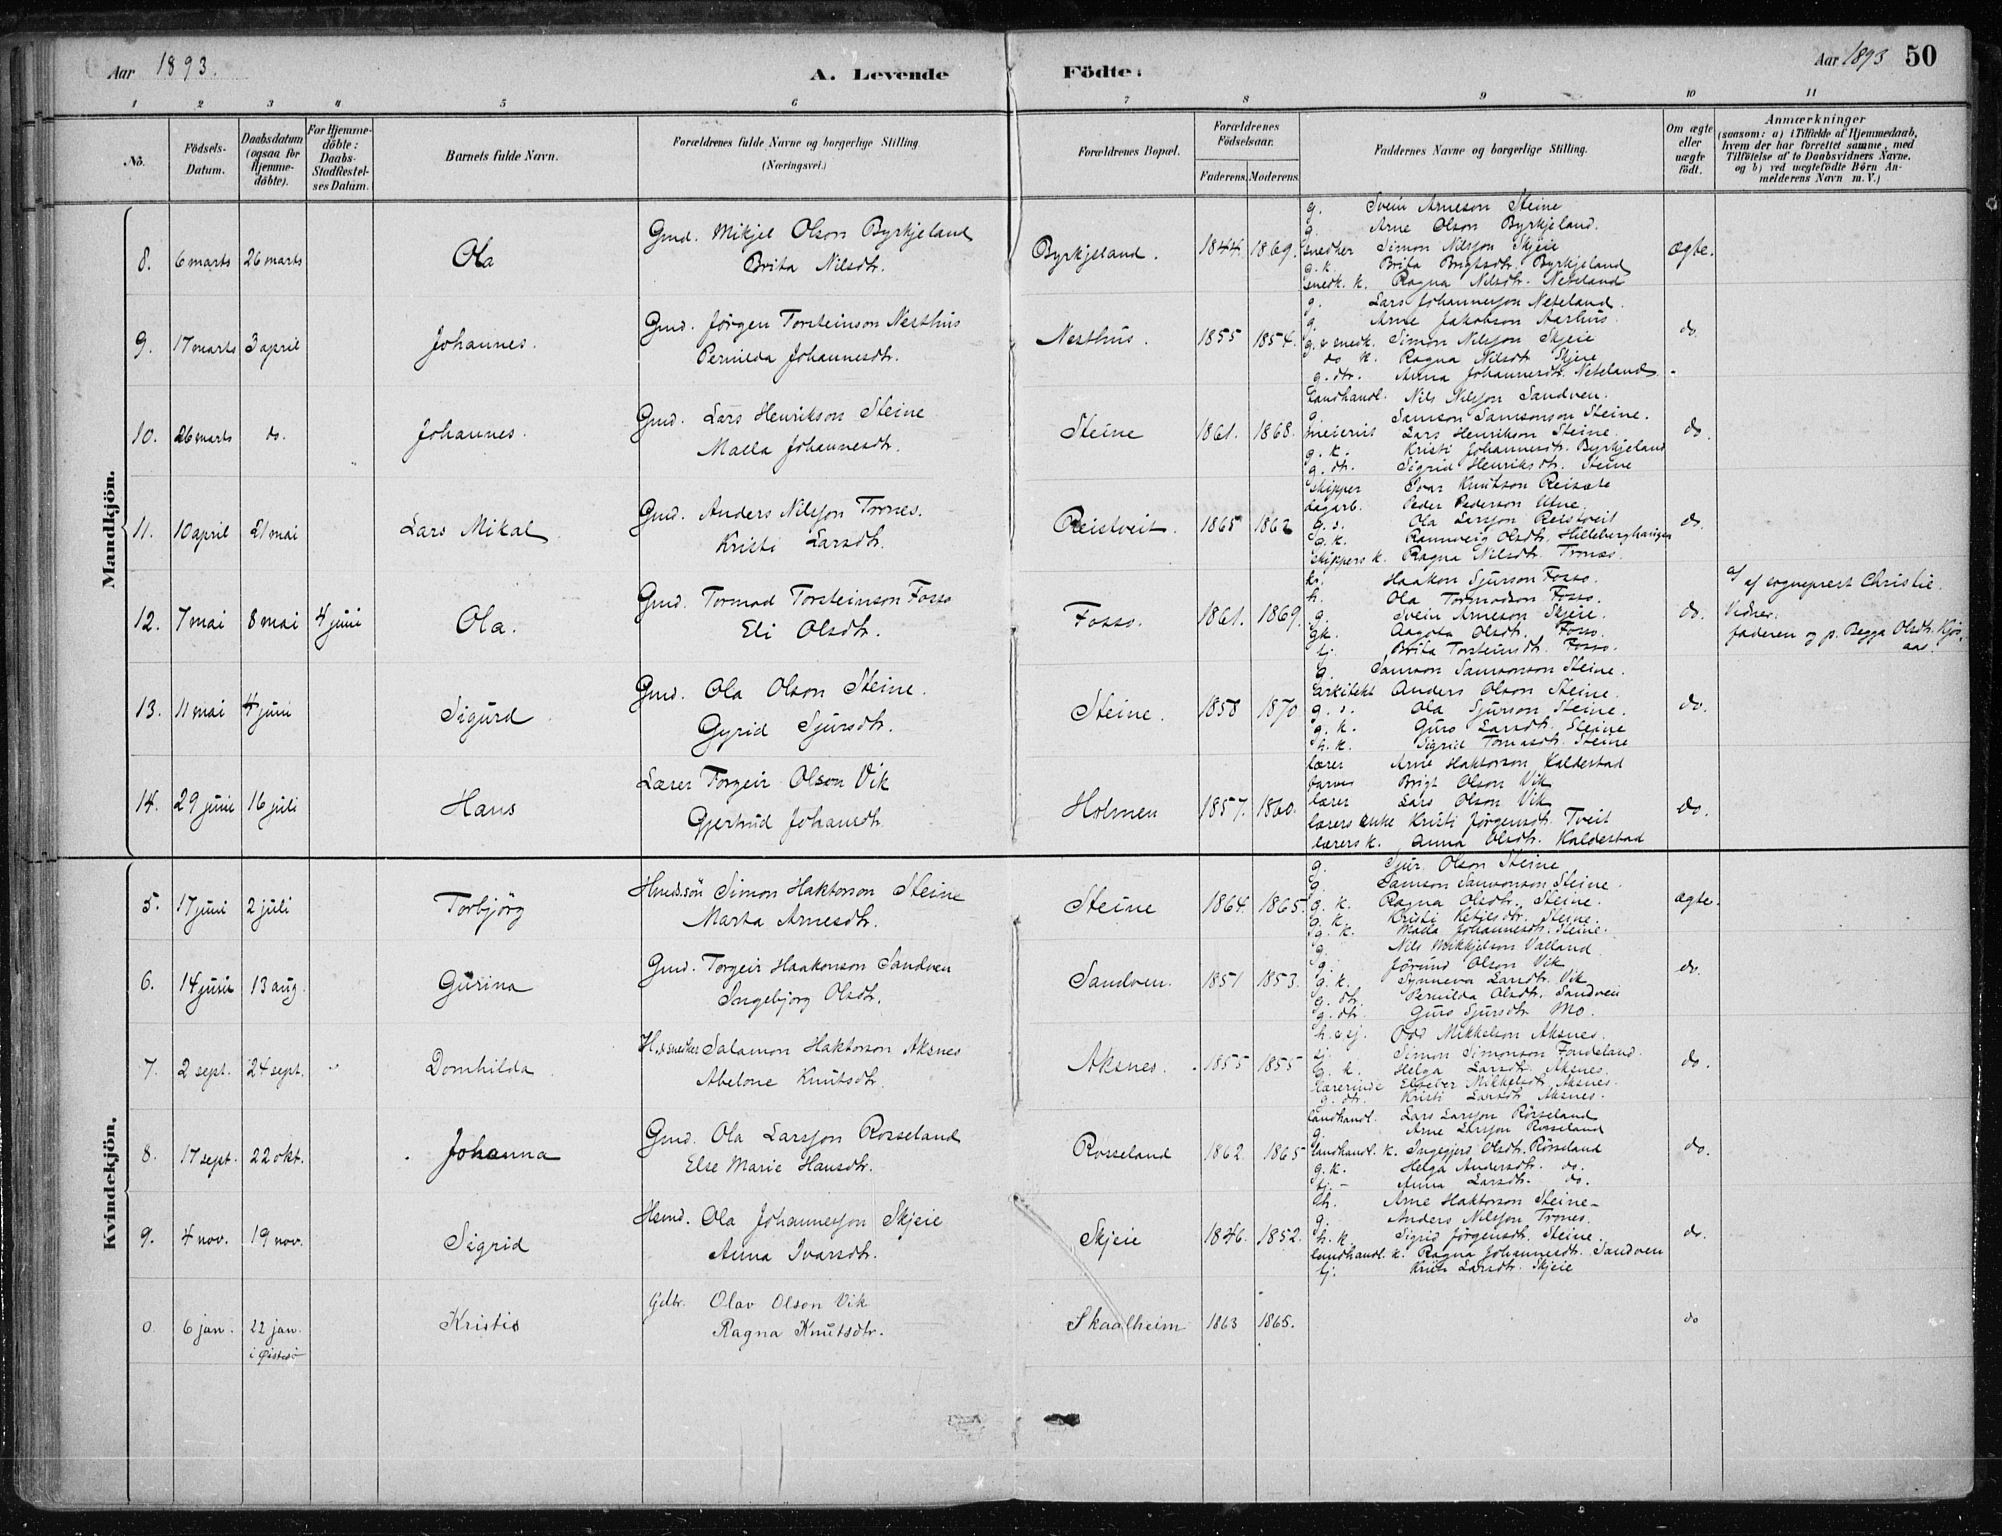 Aar 1893.
A. Levende Födte.
Aar 1893 50
1 2 3 4 5 6 7 8 9 10 11
No.
Födsels-Datum.
Daabsdatum (ogsaa for Hjemme-döbte).
For Hjemme-döbte: Daabs-Stadfæstel-ses Datum.
Barnets fulde Navn.
Forældrenes fulde Navne og borgerlige Stilling (Næringsvei.)
Forældrenes Bopæl.
Forældrenes Födselsaar.
Faderens. Moderens.
Faddernes Navne og borgerlige Stilling.
Om ægte eller uægte födt.
Anmærkninger
(saasom: a) i Tilfælde af Hjemmedaab, hvem der har forrettet samme, med Tilföielse af to Daabsvidners Navne, og b) ved uægtefödte Börn An-melderens Navn m. V.)
Mandkjön.
8. 6 marts 26 marts Ola
Gmd. Mikjel Olson Byrkjeland
Brita Nilsdtr.
Byrkjeland. 1844. 1869.
g. Svein Arneson Steine
g. Arne Olson Byrkjeland.
snedker Simon Nilsson Skjeie
g. k. Brita Brigtsdtr. Byrkjeland
snedk. k. Ragna Nilsdtr. Neteland
ægte.
9. 17 marts 3 april Johannes.
Gmd. Jörgen Torsteinson Nesthus
Pernilda Johannesdtr.
Nesthus. 1855 1854.
g. Lars Johannesson Neteland.
g. Arne Jakobson Aarhus
g. & snedk. Simon Nilsson Skjeie
do k. Ragna Nilsdtr. Skjeie
g. dtr. Anna Johannesdtr. Neteland.
do.
10. 26 marts do. Johannes.
Gmd. Lars Henrikson Steine
Maela Johannesdtr.
Steine 1861. 1868.
Landhandl. Nils Nilsson Sandven.
g. Samson Samsonson Steine.
meierist Lars Henrikson Steine.
g. k. Kristi Johannesdtr. Byrkjeland
g. dt. Sigrid Henriksdtr. Steine
do.
11. 10 april 21 mai Lars Mikal
Gmd. Anders Nilsson Trones.
Kristi Larsdtr.
Reistveit. 1865 1862
skipper Ivar Knutson Reisæte
dagarb. Peder Pederson Utne
g. s. Ola Larsson Reistveit
g. k. Rannveig Olsdtr.
skippers k. Ragna Nilsdtr. Trones.
do.
12. 7 mai 8 mai 4 juni Ola.
Gmd. Tormod Torsteinson Fosso
Eli Olsdtr.
Fosso. 1861. 1869.
Haakon Sjurson Fosso.
h. Ola Tormodson Fosso.
g. Svein Arneson Skjeie.
gk. Aagota Olsdt. Fosso.
tj. Brita Torsteinsdtr. Fosso.
do.
a/ af sogneprest Christie.
Vidner:
faderen og p. Begga Olsdtr. Kjös
aas.
13. 11 mai 4 juni Sigurd
Gmd. Ola Olson Steine.
Gyrid Sjursdtr.
Steine. 1858 1870
g. Samson Samsonson Steine.
arkitekt Anders Olson Steine.
g. s. Ola Sjurson Steine.
g. k. Guro Larsdtr. Steine
h. k. Sigrid Tomasdtr. Steine
do.
14. 29 juni 16 juli Hans
Lærer Torgeir Olson Vik
Gjertrud Johansdtr.
Holmen 1857. 1860.
lærer Arne Haktorson Kaldestad
Brigt Olson Vik
lærer Lars Olson Vik
lærers enke Kristi Jörgensdt. Tveit
lærers k. Anna Olsdtr. Kaldestad
do.
Kvindekjön.
5. 17 juni 2 juli Torbjörg
Hmdssön Simon Haktorson Steine
Marta Arnesdtr.
Steine 1864. 1865.
g. Sjur Olson Steine
g. Samson Samsonson Steine.
g. k. Ragna Olsdtr. Steine.
g. k. Kristi Ketilsdtr. Steine.
g. k. Maela Johannesdtr. Steine.
ægte.
6. 14 juni 13 aug. Gurina
Gmd. Torgeir Haakonson Sandven
Ingebjorg Olsdtr.
Sandven. 1851 1853.
g. Nils Mikkjelson Valland
g. Jörund Olson Vik
g. k. Synneva Larsdtr. Vik
g. dtr. Pernilda Olsdtr. Sandven
g. dtr. Guro Sjursdtr Mo.
do.
7. 2 sept. 24 sept. Domhilda
Salamon Haktorson Aksnes
Abelone Knutsdtr.
Aksnes. 1855 1855
Odd Mikkelson Aksnes.
sj. Simon Simonson Fondeland.
g. k. Helga Larsdtr. Aksnes.
Lærerinde Elseber Mikkelsdt. Aksnes.
g. dtr. Kristi Larsdtr Aksnes.
do.
8. 17 sept. 22 okt. Johanna
Gmd. Ola Larsson Rosseland
Else Marie Hansdtr.
Rosseland 1862. 1865
landhandl. Lars Larsson Rosseland
g. Arne Larsson Rosseland
landhandl. k. Ingegjerd Olsdt. Rosseland
g. k. Helga Andersdtr. do.
tj. - Anna Larsdtr. do.
do.
9. 4 nov. 19 nov. Sigrid
Hsmd. Ola Johannesson Skjeie
Anna Ivarsdtr.
Skjeie 1846. 1852.
h. Arne Haktorson Steine
g. Anders Nilsson Trones.
h. k. Sigrid Jörgensdt. Steine.
landhandl. k. Ragna Johannesdt. Sandven
tj. Kristi Larsdtr. Skjeie
do.
0. 6 jan. 22 jan. Kristi
i Østesö
Gdbr. Olav Olson Vik
Ragna Knutsdtr.
Skaalheim 1863 1865.
do